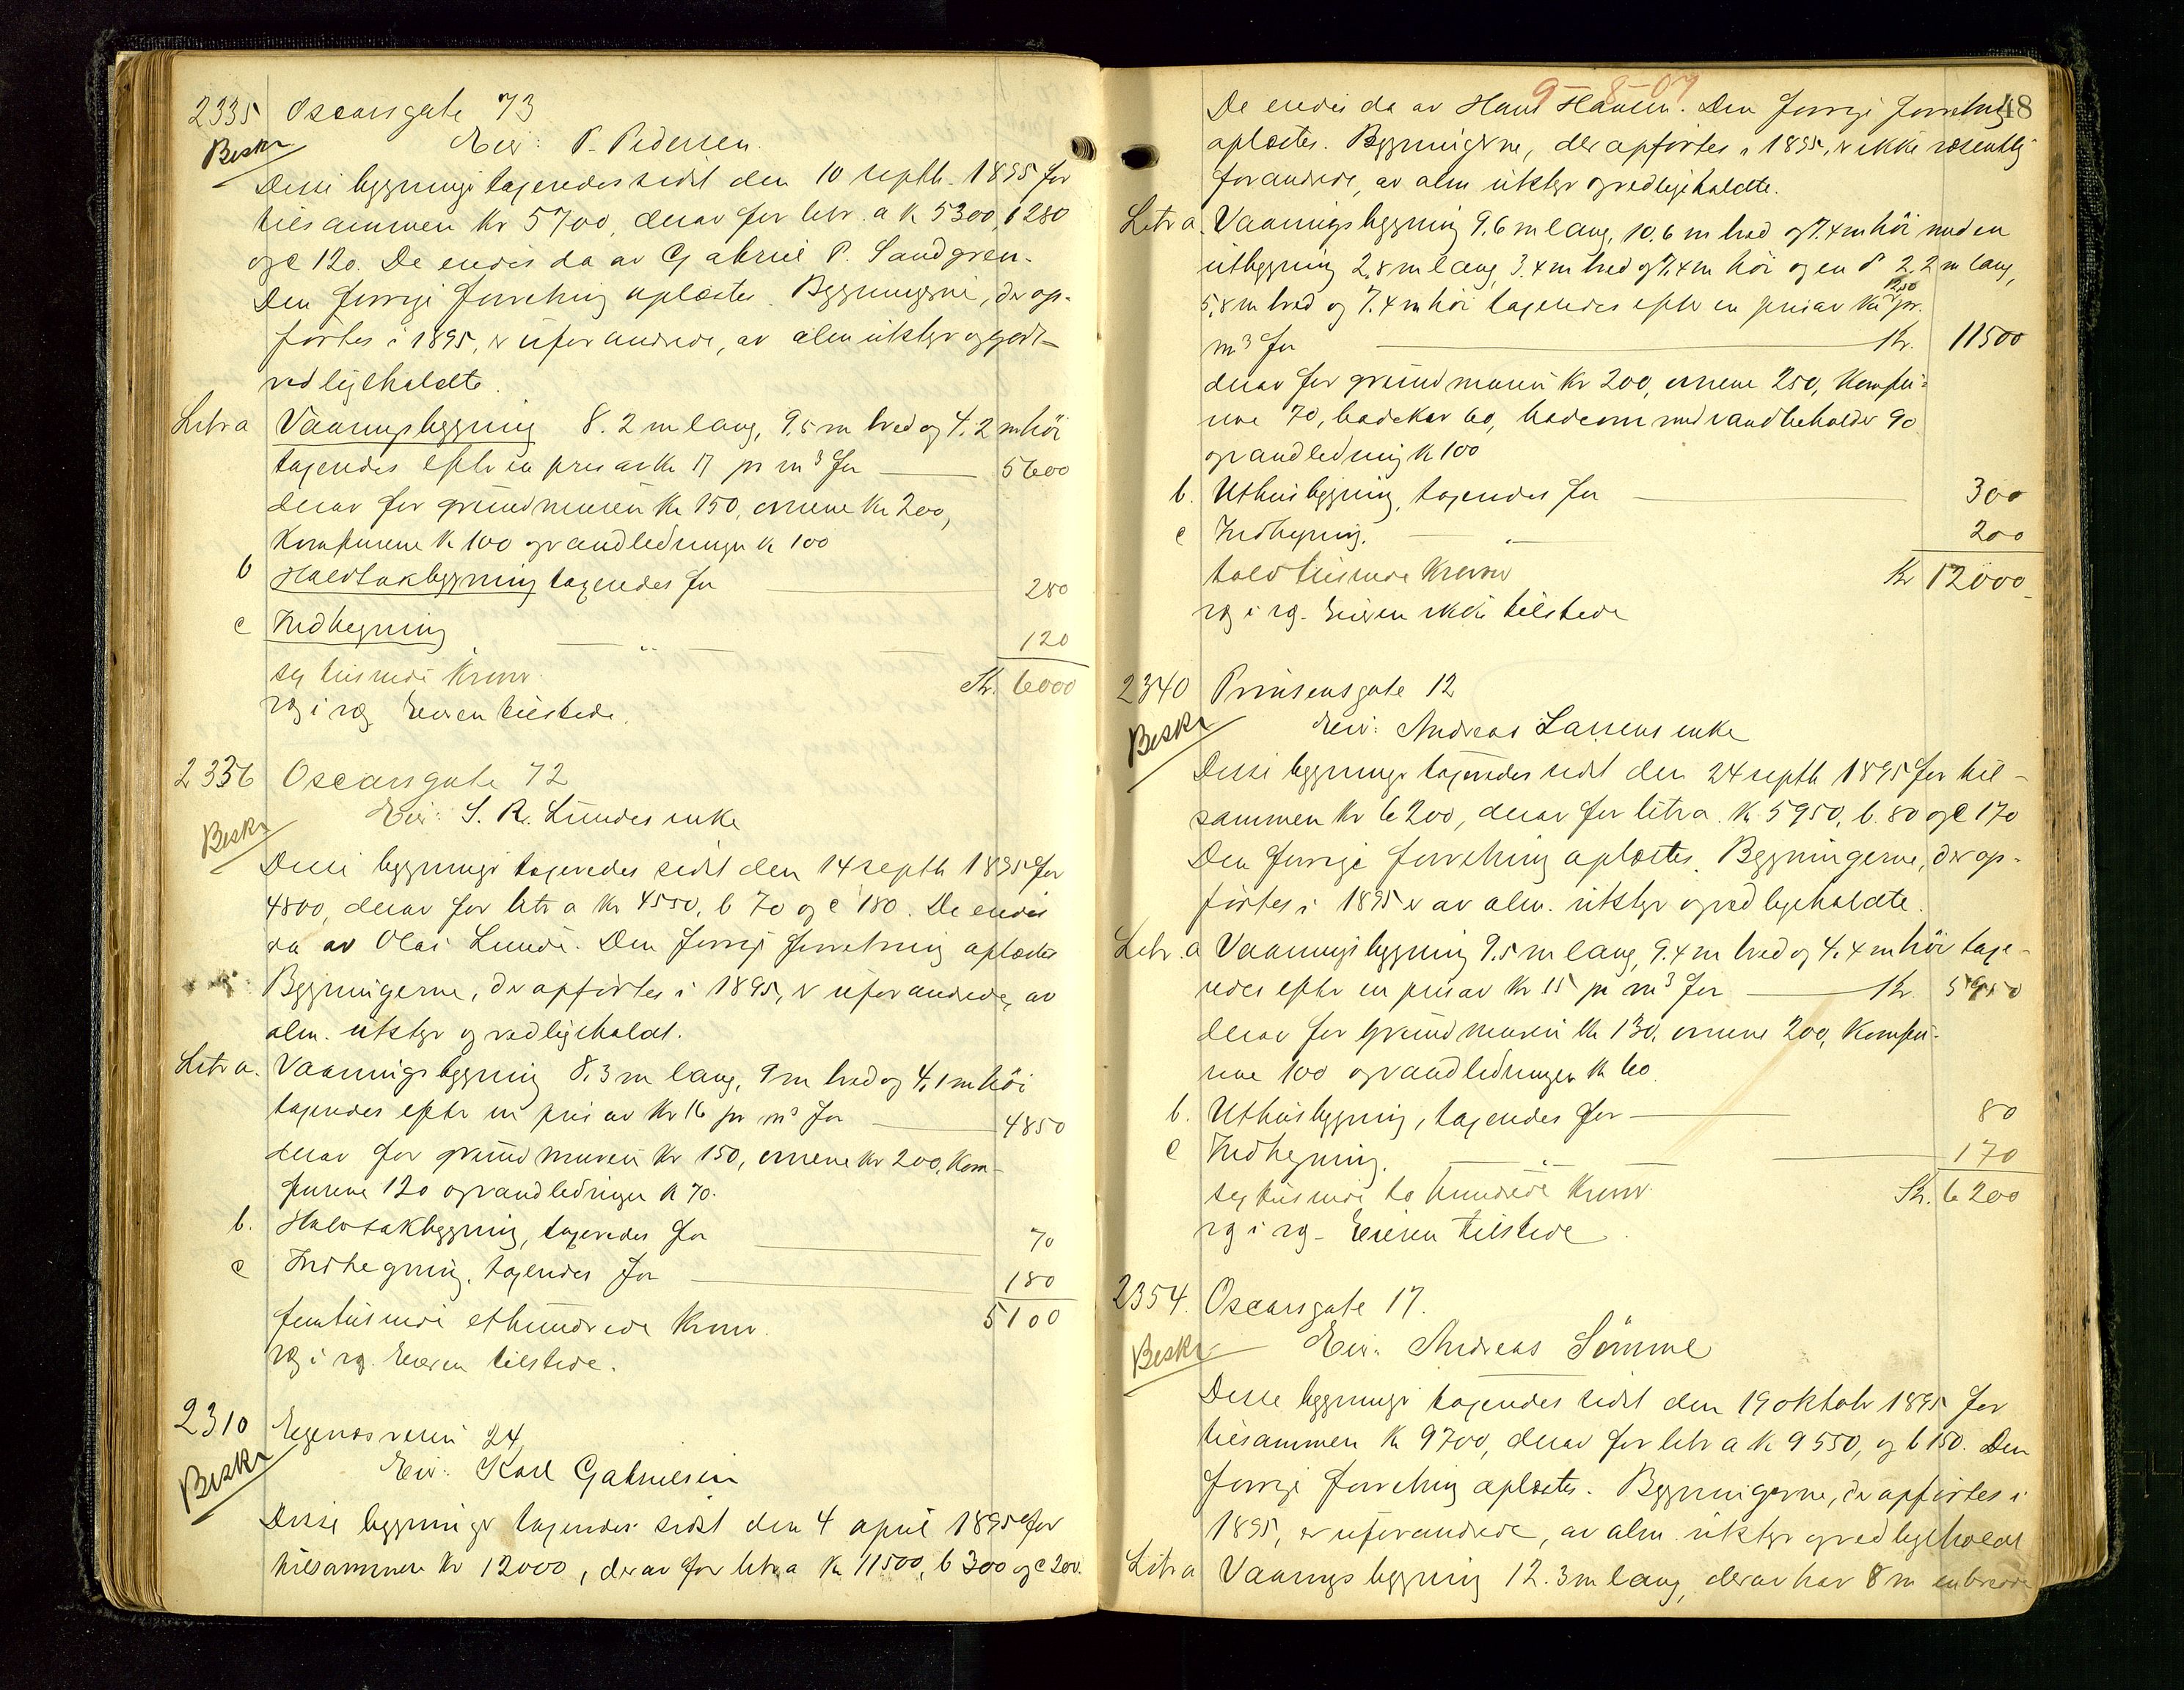 2335 Oscarsgate 73
Beskr
Eier: P. Pedersen.
Disse bygninger taxeredes sidst den 10 septb. 1895 for
tilsammen Kr 5700, derav for litr. a K 5300, b 280
og c 120. De eiedes da av Gabriel P. Sandgren.
Den forrige forretning oplæstes. Bygningerne, der op-
førtes i 1895, er uforandrede, av alm utstyr og godt
vedligeholdte.
Litr a Vaaningsbygning 8.2 m lang, 9,5 m bred og 4,2 m høi
taxeredes efter en pris av Kr 17 pr m3 for 5600
derav for grundmuren Kr 150, ovnene Kr 200,
Komfurene K 100 og vandledningen K 100
b Halvtakbygning taxeredes for 280
c Indhegning " 120
sex tusinde Kroner Kr. 6000
rg i rg. Eieren tilstede.
2336 Oscarsgate 72
Beskr
Eier: S. R. Lundes enke
Disse bygninger taxeredes sidst den 14 septb 1895 for
4800, derav for litr a Kr 4550, b 70 og c 180. De eiedes
da av Olai Lunde. Den forrige forretning oplæstes
Bygningerne, der opførtes i 1895, er uforandrede, av
alm. utstyr og vedligeholdt.
Litr a. Vaaningsbygning 8,3 m lang, 9 m bred og 4,1 m høi
taxeredes efter en pris av Kr 16 pr m3 for 4850
derav for grundmuren Kr 150, ovnene Kr 200, Kom-
furene 120 og vandledningen K 70.
b. Halvtakbygning, taxeredes for 70
c Indhegning, taxeredes for 180
femtusinde ethundrede Kroner. 5100
rg i rg. Eieren tilstede.
2310 Egenesveien 24
Beskr
Eier: Karl Gabrielsen
Disse bygninger taxeredes sidst den 4 april 1895 for
tilsammen Kr 12000, derav for litr. a Kr 11500, b 300 og c 200.
9-8-09
48
De eiedes da av Hans Hansen. Den forrige forretning
oplæstes. Bygningerne, der opførtes i 1895, er ikke væsentlig
forandrede, av alm utstyr og vedligeholdte.
Litr a. Vaaningsbygning 9,6 m lang, 10,6 m bred og 7,4 m høi med en
utbygning 2,8 m lang, 3,4 m bred og 7,4 m høi og en do 2,2 m lang,
5,8 m bred og 7,4 m høi taxeredes efter en pris av Kr 12,50 pr.
m3 for Kr. 11500
derav for grundmuren Kr 200, ovnene 250, Komfu-
rene 70, badekar 60, badeovn med vandbeholder 90
og vandledning K 100
b. Uthusbygning, taxeredes for 300
c Indhegning. " 200
tolv tusinde Kroner Kr 12000
rg i rg. Eieren ikke tilstede
2340 Prinsensgate 12
Beskr
Eier: Andreas Larsens enke
Disse bygninger taxeredes sidst den 24 septb 1895 for til-
sammen Kr 6200, derav for litr a. K 5950, b. 80 og c 170
Den forrige forretning oplæstes. Bygningerne, der op-
førtes i 1895 er av alm. utstyr og vedligeholdte.
Litr. a Vaaningsbygning 9.5 m lang, 9.4 m bred og 4.4 m høi taxe-
redes efter en pris av Kr 15 pr m3 for Kr. 5950
derav for grundmuren Kr 130, ovnene 200, Komfu-
rene 100 og vandledningen K 60.
b. Uthusbygning, taxeredes for 80
c Indhegning. " 170
sex tusinde to hundrede Kroner Kr. 6200
rg i rg. Eieren tilstede.
2354. Oscarsgate 17.
Beskr
Eier: Andreas Sömme
Disse bygninger taxeredes sidst den 19 oktobr 1895 for
tilsammen K 9700, derav for litr a K 9550, og b 150. Den
forrige forretning oplæstes. Bygningerne, der opførtes i
1895, er uforandrede, av alm. utstyr og vedligeholdt
Litr a Vaanings bygning 12.3 m lang, derav har 8 m en bredde